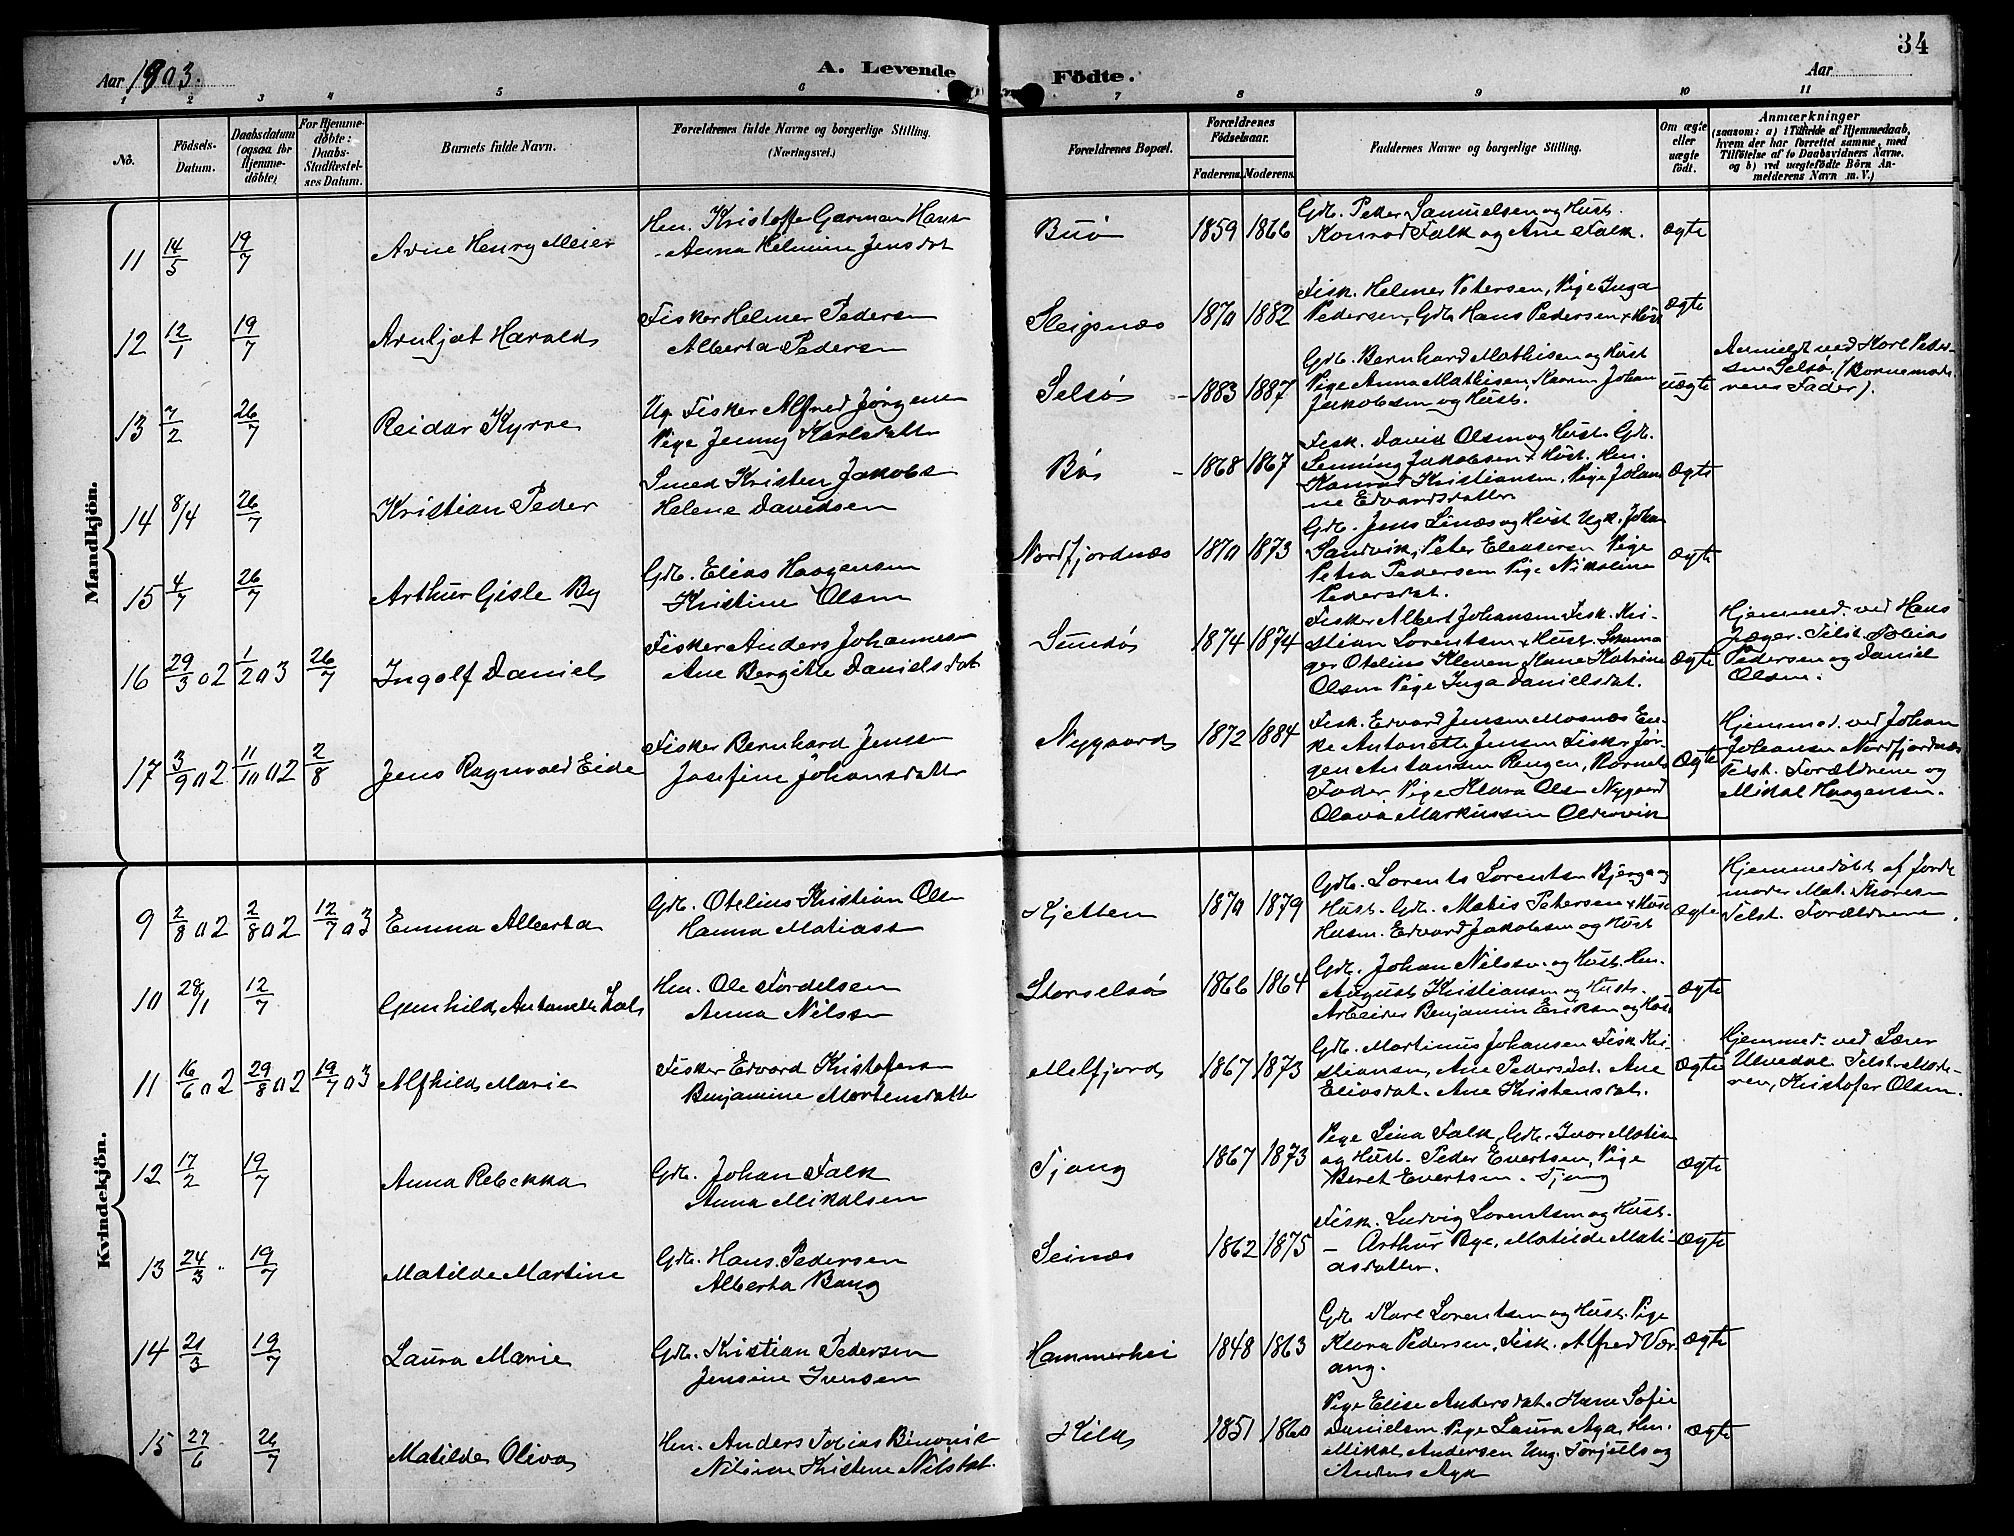 34
Aar 1903.
A. Levende Födte.
Aar
1 2 3 4 5 6 7 8 9 10 11
No.
Födsels-Datum.
Daabsdatum (ogsaa for Hjemme-döbte)
For Hjemme-döbte: Daabs-Stadfæstelses Datum.
Barnets fulde Navn.
Forældrenes fulde Navne og borgerlige Stilling.
(Næringsvei.)
Forældrenes Bopæl.
Forældrenes Födselsaar.
Faderens. Moderens.
Faddernes Navne og borgerlige Stilling.
Om ægte eller uægte födt.
Anmærkninger
(saasom: a) i Tilfælde af Hjemmedaab,
hvem der har forrettet samme, med
Tilföielse af to Daabsvidners Navne.
og b) ved uægtefödte Börn An-
melderens Navn m. V.)
Mandkjön.
11 14/5 19/7 Arne Henry Meier
Hm. Kristoffer Garman Hans
Anna Helmine Jensdat
Buø 1859 1866
Gdb. Peder Samuelsen og Hust.
Konrad Falk og Ane Falk.
ægte
12 12/1 19/7 Arnljot Harald
Fisker Helmer Pedersen
Alberta Pedersen
Sleipnæs 1870 1882
Fisk. Helmer Petersen, Pige Inga
Pedersen, Gdb. Hans Pedersen + Hust
ægte
13 7/2 26/7 Reidar Kyrre
Ug. Fisker Alfred Jørgensen
Pige Jenny Karlsdatter
Selsø 1883 1887
Gdb. Bernhard Mathisen og Hust
Pige Anna Mathisen, Johan
Jakobsen og Hust.
uægte
Anmeldt ved Karl Peder-
sen Selsø (Barnemode-
rens Fader).
14 8/4 26/7 Kristian Peder
Smed Kristen Jakobs
Helene Davidsen
1868 1867
Fisk. David Olsen og Hust. Gdb.
Jakobsen + Hust. Hm.
Konrad Kristiansen, Pige Johan
ne Edvardsdatter
ægte
15 4/7 26/7 Arthur Gisle By
Gdb. Elias Haagensen
Kristine Olsen
Nordfjordnæs 1870 1873
Gdb. Jens og Hust Ugk. Johan
Sandvik, Peter Eleasersen Pige
Petra Pedersen Pige Nikoline
Pedersdat.
ægte
16 29/3 02 1/2 03 26/7 Ingolf Daniel
Fisker Anders Johannesen
Ane Bergitte Danielsdat
Sundø 1874 1874
Fisker Albert Johansen Fisk. Kri-
stian Lorentsen + Hust.
Otelius Kone Katrine
Olsen Pige Inga Danielsdat.
ægte
Hjemmed. ved Hans
Jæger. Tilst. Tobias
Pedersen og Daniel
Olsen.
17 3/9 02 11/10 02 2/8 Jens Ragnvald Eide
Fisker Bernhard Jensen
Josefine Johansdatter
Nygaard 1872 1884
Fisk. Edvard Jensen Mosnæs En-
ke Antonette Jensen Fisker Jør-
gen Antonsen Ringen, Barnets
Fader Pige Klara Olsen Nygaard
Olava Markussen Oldervik
ægte
Hjemmed. ved Johan
Johansen Nordfjordnæs
Tilst. Forældrene og
Mikal Haagensen.
Kvindekjön.
9 2/8 02 2/8 02 12/7 03 Emma Alberta
Gdb. Otelius Kristian Olsen
Hanna Matiassen
Kjetten 1870 1879
Gdb. Lorents Lorentsen Bjerga og
Hust. Gdb. Matis Petersen + Hust
Husm. Edvard Jakobsen og Hust
ægte
Hjemmedøbt af Jorde
moder Mat. Thoresen
Tilst. Forældrene.
10 28/1 12/7 Gunhild Antonette
Hm. Ole Tordelsen
Anna Nilssen
Storselsø 1866 1864
Gdb. Johan Nilsen og Hust. Hm.
August Kristiansen og Hust.
Arbeider Benjamin Eriksen og Hust
ægte
11 16/6 02 29/8 02 19/7 03 Alfhild Marie
Fisker Edvard Kristofersen
Benjamine Mortensdatter
Melfjord 1867 1873
Gdb. Martinus Johansen Fisk. Kri-
stiansen, Ane Pedersdat. Ane
Eliasdat. Ane Kristensdat.
ægte
Hjemmed. ved Lærer
Ulvedal. Tilst. Mode-
ren, Kristofer Olsen.
12 17/2 19/7 Anna Rebekka
Gdb. Johan Falk
Anna Mikalsen
Tjong 1867 1873
Pige Lina Falk, Gdb. Ivar Matisen
og Hust. Peder Evertsen, Pige
Beret Evertsen. Tjong
ægte
13 24/3 19/7 Matilde Martine
Gdb. Hans Pedersen
Alberta Bang
Seinæs 1862 1875
Fisk. Ludvig Lorentsen og Hust.
– Arthur Bye, Matilde Mati-
asdatter.
ægte
14 21/3 19/7 Laura Marie
Gdb. Kristian Pedersen
Jensine Iversen
Hammerhei 1848 1863
Gdb Karl Lorentsen og Hust. Pige
Klara Pedersen, Fisk. Alfred Vær-
ang.
ægte
15 27/6 26/7 Matilde Oliva
Hm. Anders Tobias
Nilsine Kristine Nilsdat.
Kila 1851 1860
Pige Elise Andersdat. Kone Sofie
Danielsen Pige Laura Aga, Hm.
Mikal Andersen Ung. Torjuls og
Anders Aga
ægte